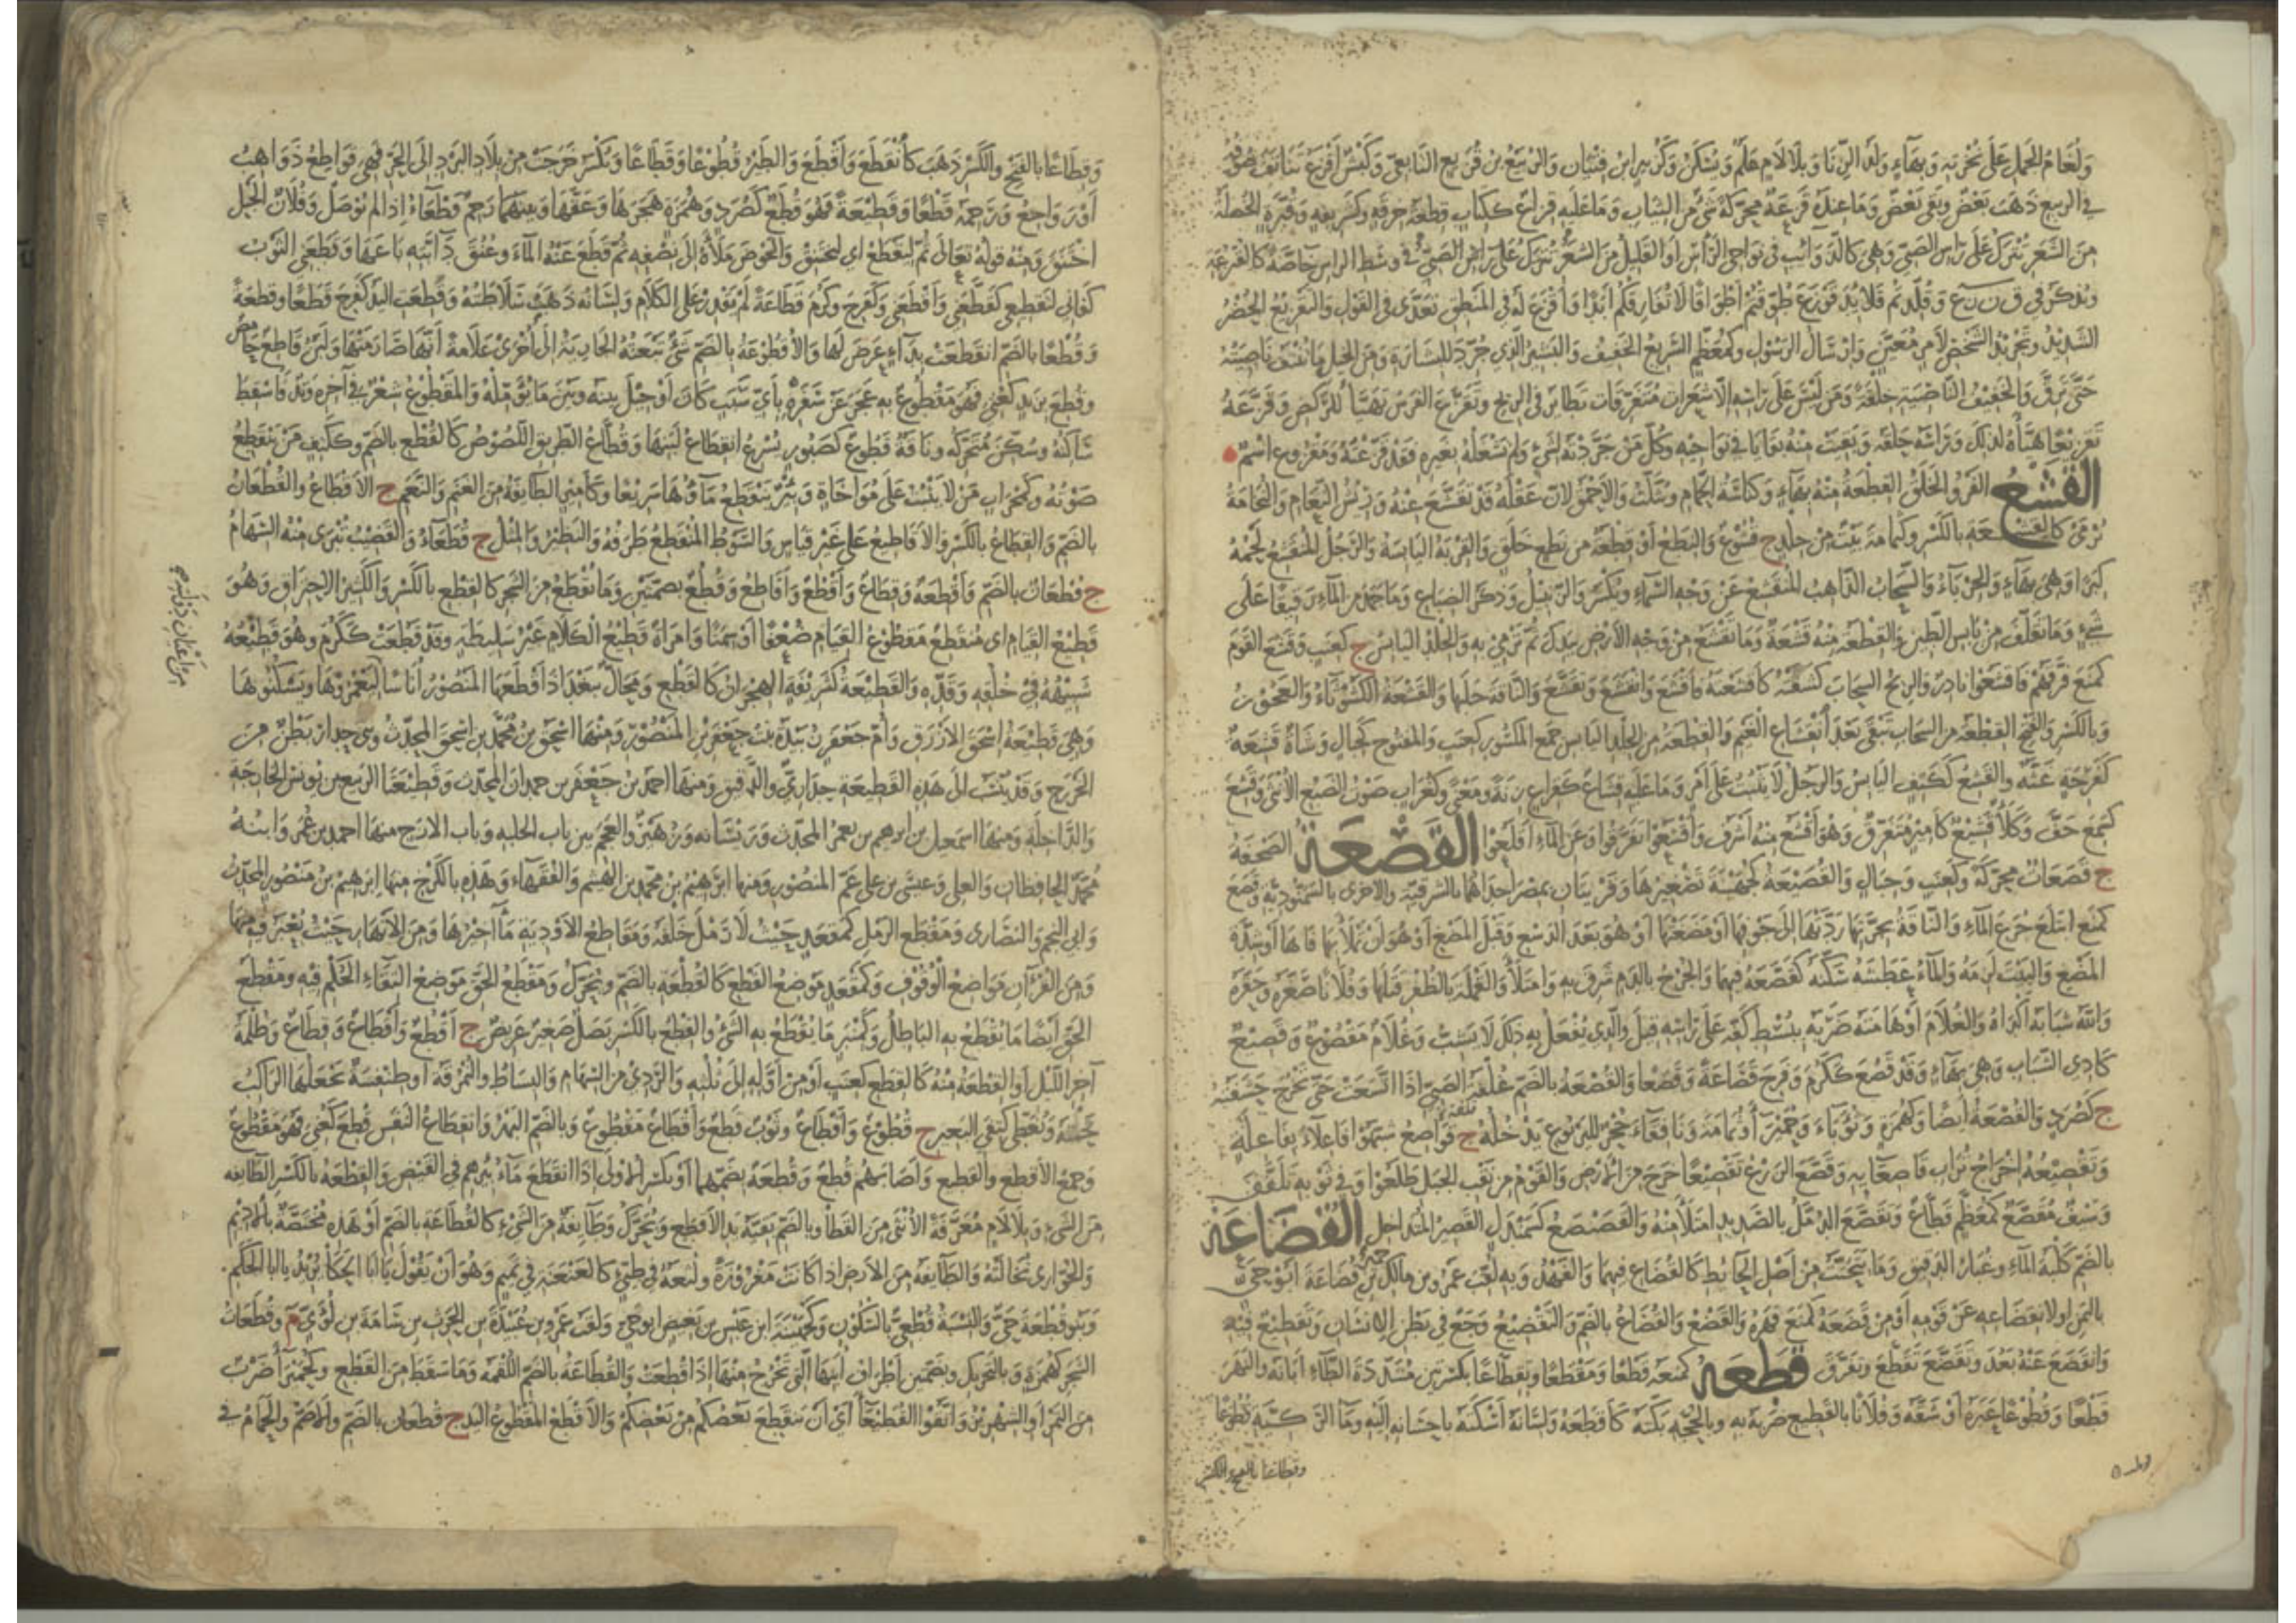 ولغام الجمل على نخرته وبهآء ولد الزنا وبلا لام علم ويسكن وكزبير ابن فتيان والربيع بن قزيع التابعى وكبش اقزع تناتف صوفه
في الربيع ذهب بعض وبقى بعض وما عنده قزعة محركة شىء من الثياب وما عليه قزاع ككتاب قطعة خرقة
من الشعر تترك على راس الصبى وهى كالذوائب فى نواحى الراس او القليل من الشعر تترك على راس الصبى فى وسط الراس خاصة كالقزعة
الشديد وتجريد الشخص لامر معين وارسال الرسول وكمعظم السريع الخفيف والبشير الذى جرد للبشارة ومن الخيل ما تنتف ناصيته
حتى ترق والخفيف الناصية خلقة ومن ليس على راسه الا شعرات متفرقات تطاير فى الريح وتقزع الفرس تهيأ للركض وقزعه
تقزيعا هيأه لذلك وراسه حلقه وبقيت منه بقايا فى نواحيه وكل من جردته لشىء ولم تشغله بغيره فقد قزعته ومقزوع اسم
القشع الفرو الخلق القطعة منه بهآء وكناسة الحمام ويثلث والاحمق لان عقله قد تقشع عنه وريش النعام والنخامة
ترمى كالقشعة بالكسر وكثمامة بيت من جلد ج قشوع والنطع او قطعة من نطع خلق والقربة اليابسة والرجل المنقشع لحمه
كبرا وهى بهآء والحربآء والسحاب الذاهب المنقشع عن وجه السمآء ويكسر والزنبيل وذكر الضباع وما جمد من المآء رقيقا على
شىء وما تقلف من يابس الطين والقطعة منه قشعة وما تقشع من وجه الارض بيدك ثم ترمى به والجلد اليابس ج كعنب وقشع القوم
كمنع فرقهم فاقشعوا نادر والريح السحاب كشفته كاقشعته فاقشع وانقشع وتقشع والناقة حلبها والقشعة الكشوثآء والعجوز
وبالكسر والفتح القطعة من السحاب تبقى بعد انقشاع الغيم والقطعة من الجلد اليابس جمع المكسور كعنب والمفتوح كجبال وشاة قشعة
كفرحة غثة والقشع ككتف اليابس والرجل لا يثبت على امر وما عليه قشاع كقزاع زنة ومعنى وكغراب صوت الضبع الانثى وقشع
كسمع خف وكلأ قشيع كامير متفرق وهو اقشع منه اشرف واقشعوا تفرقوا وعن المآء اقلعوا القصعة الصحفة
ج قصعات محركة وكعنب وجبال والقصيعة كجهينة تصغيرها وقريتان بمصر احداهما بالشرقية والاخرى بالسمنودية وقصع
كمنع ابتلع جرع المآء والناقة بجرتها ردتها الى جوفها او مضغتها او هو بعد الدسع وقبل المضغ او هو ان تملأ بها فاها او شدة
المضغ والبيت لزمه والمآء عطشه سكنه كقصعه فيهما والجرح بالدم شرق به وامتلأ والقملة بالظفر قتلها وفلانا صغره وحقره
والله شبابه اكداه والغلام او هامته ضربه ببسط كفه على راسه قيل والذى يفعل به ذلك لا يشب وغلام مقصوع وقصيع
كادى الشباب وهى بهآء وقد قصع ككرم وفرح قصاعة وقصعا والقصعة بالضم غلفة الصبى اذا اتسعت حتى تخرج حشفته
ج كصرد والقصعة ايضا وكهمزة وثوبآء وخميرآ وثمامة ونافقآء جحر لليربوع يدخله ج قواصع شبهوا فاعلآء بفاعلة
وتقصيعه اخراج تراب قاصعايه وقصع الزرع تقصيعا خرج من الارض والقوم من نقب الجبل طلعوا وفى ثوبه تلفف
وسيف مقصع كمعظم قطاع وتقصع الدمل بالصديد امتلأ منه والقصنصع كسمندل القصير المتداخل القضاعة
بالضم كلبة المآء وغبار الدقيق وما يتحتت من اصل الحائط كالقضاع فيهما والفهد وبه لقب عمرو بن مالك بن حمير قضاعة ابو حى
باليمن او لانقضاعه عن قومه او من قضعه كمنع قهره والقضع والقضاع بالضم والتقضيع وجع فى بطن الانسان وتقطيع فيه
وانقضع عنه بعد وتقضع تقطع وتفرق قطعه كمنعه قطعا ومقطعا وتقطاعا بكسرتين مشددة الطآء ابانه والنهر
قطعا وقطوعا عبره او شقه وفلانا بالقطيع ضربه به وبالحجة بكته كاقطعه ولسانه اسكته باحسانه اليه ومآ الركية قطوعا
وقطاعا بالفتح والكسر
وقطاعا بالفتح والكسر ذهب كانقطع واقطع والطير قطوعا وقطاعا ويكسر خرجت من بلاد البرد الى الحر فهى قواطع ذواهب
او رواجع ورحمه قطعا وقطيعة فهو قطع كصرد وهمزة هجرها وعقها وبينهما رحم قطعآء اذا لم توصل وفلان الحبل
اختنق ومنه قوله تعالى ثم ليقطع اى ليختنق والحوض ملأه الى نصفه ثم قطع عنه المآء وعنق دابته باعها وقطعنى الثوب
كفانى لتقطيعى كقطعنى واقطعنى وكفرح وكرم قطاعة لم يقدر على الكلام ولسانه ذهبت سلاطته وقطعت اليد كفرح قطعا وقطعة
وقطعا بالضم انقطعت بدآء عرض لها والاقطوعة بالضم شىء تبعثه الجارية الى اخرى علامة انها صارمتها ولبن قاطع حامض
وقطع بزيد كعنى فهو مقطوع به عجز عن سفره باى سبب كان او حيل بينه وبين ما يؤمله والمقطوع شعر فى آخره وتد فاسقط
ساكنه وسكن متحركه وناقة قطوع كصبور يسرع انقطاع لبنها وقطاع الطريق اللصوص كالقطع بالضم وككتف من ينقطع
صوته وكمحراب من لا يثبت على مواخاة وبئر ينقطع مآؤها سريعا وكامير الطائفة من الغنم والنعم ج الاقطاع والقطعان
بالضم والقطاع بالكسر والاقاطيع على غير قياس والسوط المنقطع طرفه والنظير والمثل ج قطعآء والقضيب تبرى منه السهام
ج قطعان بالضم واقطعة وقطاع واقطع واقاطع وقطع بضمتين وما تقطع من الشجر كالقطع بالكسر والكثير الاحتراق وهو
قطيع القيام اى منقطع مقطوع القيام ضعفا او سمنا وامراة قطيع الكلام غير سليطة وقد قطعت ككرم وهو قطيعه
شبيهه فى خلقه وقده والقطيعة كشريفة الهجران كالقطع ومحال ببغداد اقطعها المنصور اناسا ليعمروها ويسكنوها
وهى قطيعة اسحق الازرق وام جعفر زبيدة بنت جعفر بن المنصور ومنها اسحق بن محمد بن اسحق المحدث وبنى جدار بطن من
الخزرج وقد ينسب الى هذه القطيعة جدارى والدقيق ومنها احمد بن جعفر بن حمدان المحدث وقطيعتا الربيع بن يونس الخارجة
والداخلة ومنها اسمعيل بن ابرهيم بن يعمر المحدث وريسانه وزهير والعجم بين باب الحلبه وباب الازج منها احمد بن عمر وابنه
محمد الحافظان والعكى وعيسى بن على عم المنصور ومنها ابرهيم بن محمد بن الهيثم والفقهآء وهذه بالكرخ منها ابرهيم بن منصور المحدث
وابى النجم والنصارى ومقطع الرمل كمقعد حيث لا رمل خلفه ومقاطع الاودية مآخيرها ومن الانهار حيث يعبر فيه منها
ومن القرآن مواضع الوقوف وكمقعد موضع القطع كالقطعة بالضم ويحرك ومقطع الحق موضع التقآء الحكم فيه ومقطع
الحق ايضا ما يقطع به الباطل وكمنبر ما يقطع به الشىء والقطع بالكسر نصل صغير عريض ج اقطع واقطاع وقطاع وظلمة
آخر الليل او القطعة منه كالقطع كعنب او من اوله الى ثلثه والردى من السهام والبساط والنمرقة او طنفسة يجعلها الراكب
تحته وتغطى كتفى البعير ج قطوع واقطاع وثوب قطع واقطاع مقطوع وبالضم البهر وانقطاع النفس قطع كعنى فهو مقطوع
وجمع الاقطع والقطيع واصابهم قطع وقطعة بضمهما او بكسر الاولى اذا انقطع مآء بئرهم فى القيض والقطعة بالكسر الطآئفه
من الشىء وبلا لام معرفة الانثى من القطا وبالضم بقية يد الاقطع ويحرك وطآئفة من الشىء كالقطاعة بالضم او هذه مختصة بالاديم
والحوارى نخالته والطآئفة من الارض اذا كانت مفروزة ولثغة فى طيىء كالعنعنة فى تميم وهو ان يقول يا ابا الحكا يريد يا ابا الحكم
وبنو قطعة حى والنسبة قطعى بالسكون وكجهينة ابن عبس بن بغيض ابو حى ولقب عمرو بن عبيدة بن الحرث بن سامة بن لؤى وقطعات
الشجر كهمزة وبالتحريك وبضمتين اطراف ابنها التى تخرج منها اذا قطعت والقطاعة بالضم اللقمة وما سقط من القطع وكحميرآ ضرب
من التمر او الشهريز واتقوا القطيعآ اى ان ينقطع بعضكم من بعضكم والاقطع المقطوع اليد ج قطعان بالضم والاصم والحمام فى